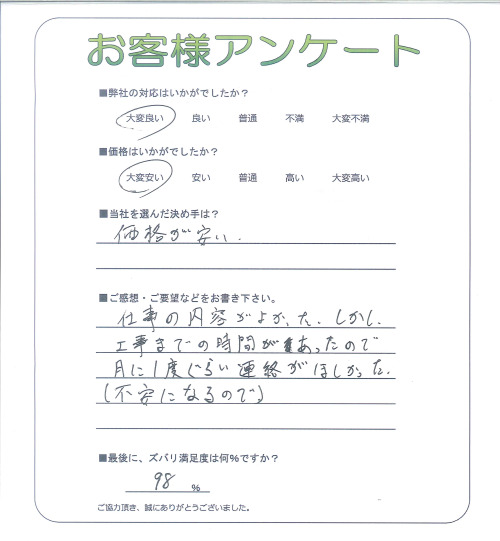 お客様アンケート
■弊社の対応はいかがでしたか？
大変良い 良い 普通 不満 大変不満
■価格はいかがでしたか？
大変安い 安い 普通 高い 大変高い
■当社を選んだ決め手は？
価格が安い.
■ご感想・ご要望などをお書き下さい。
仕事の内容がよかった.しかし.
工事までの時間があったので
月に1度ぐらい連絡がほしかった.
(不安になるので)
■最後に、ズバリ満足度は何%ですか？
98 %
ご協力頂き、誠にありがとうございました。